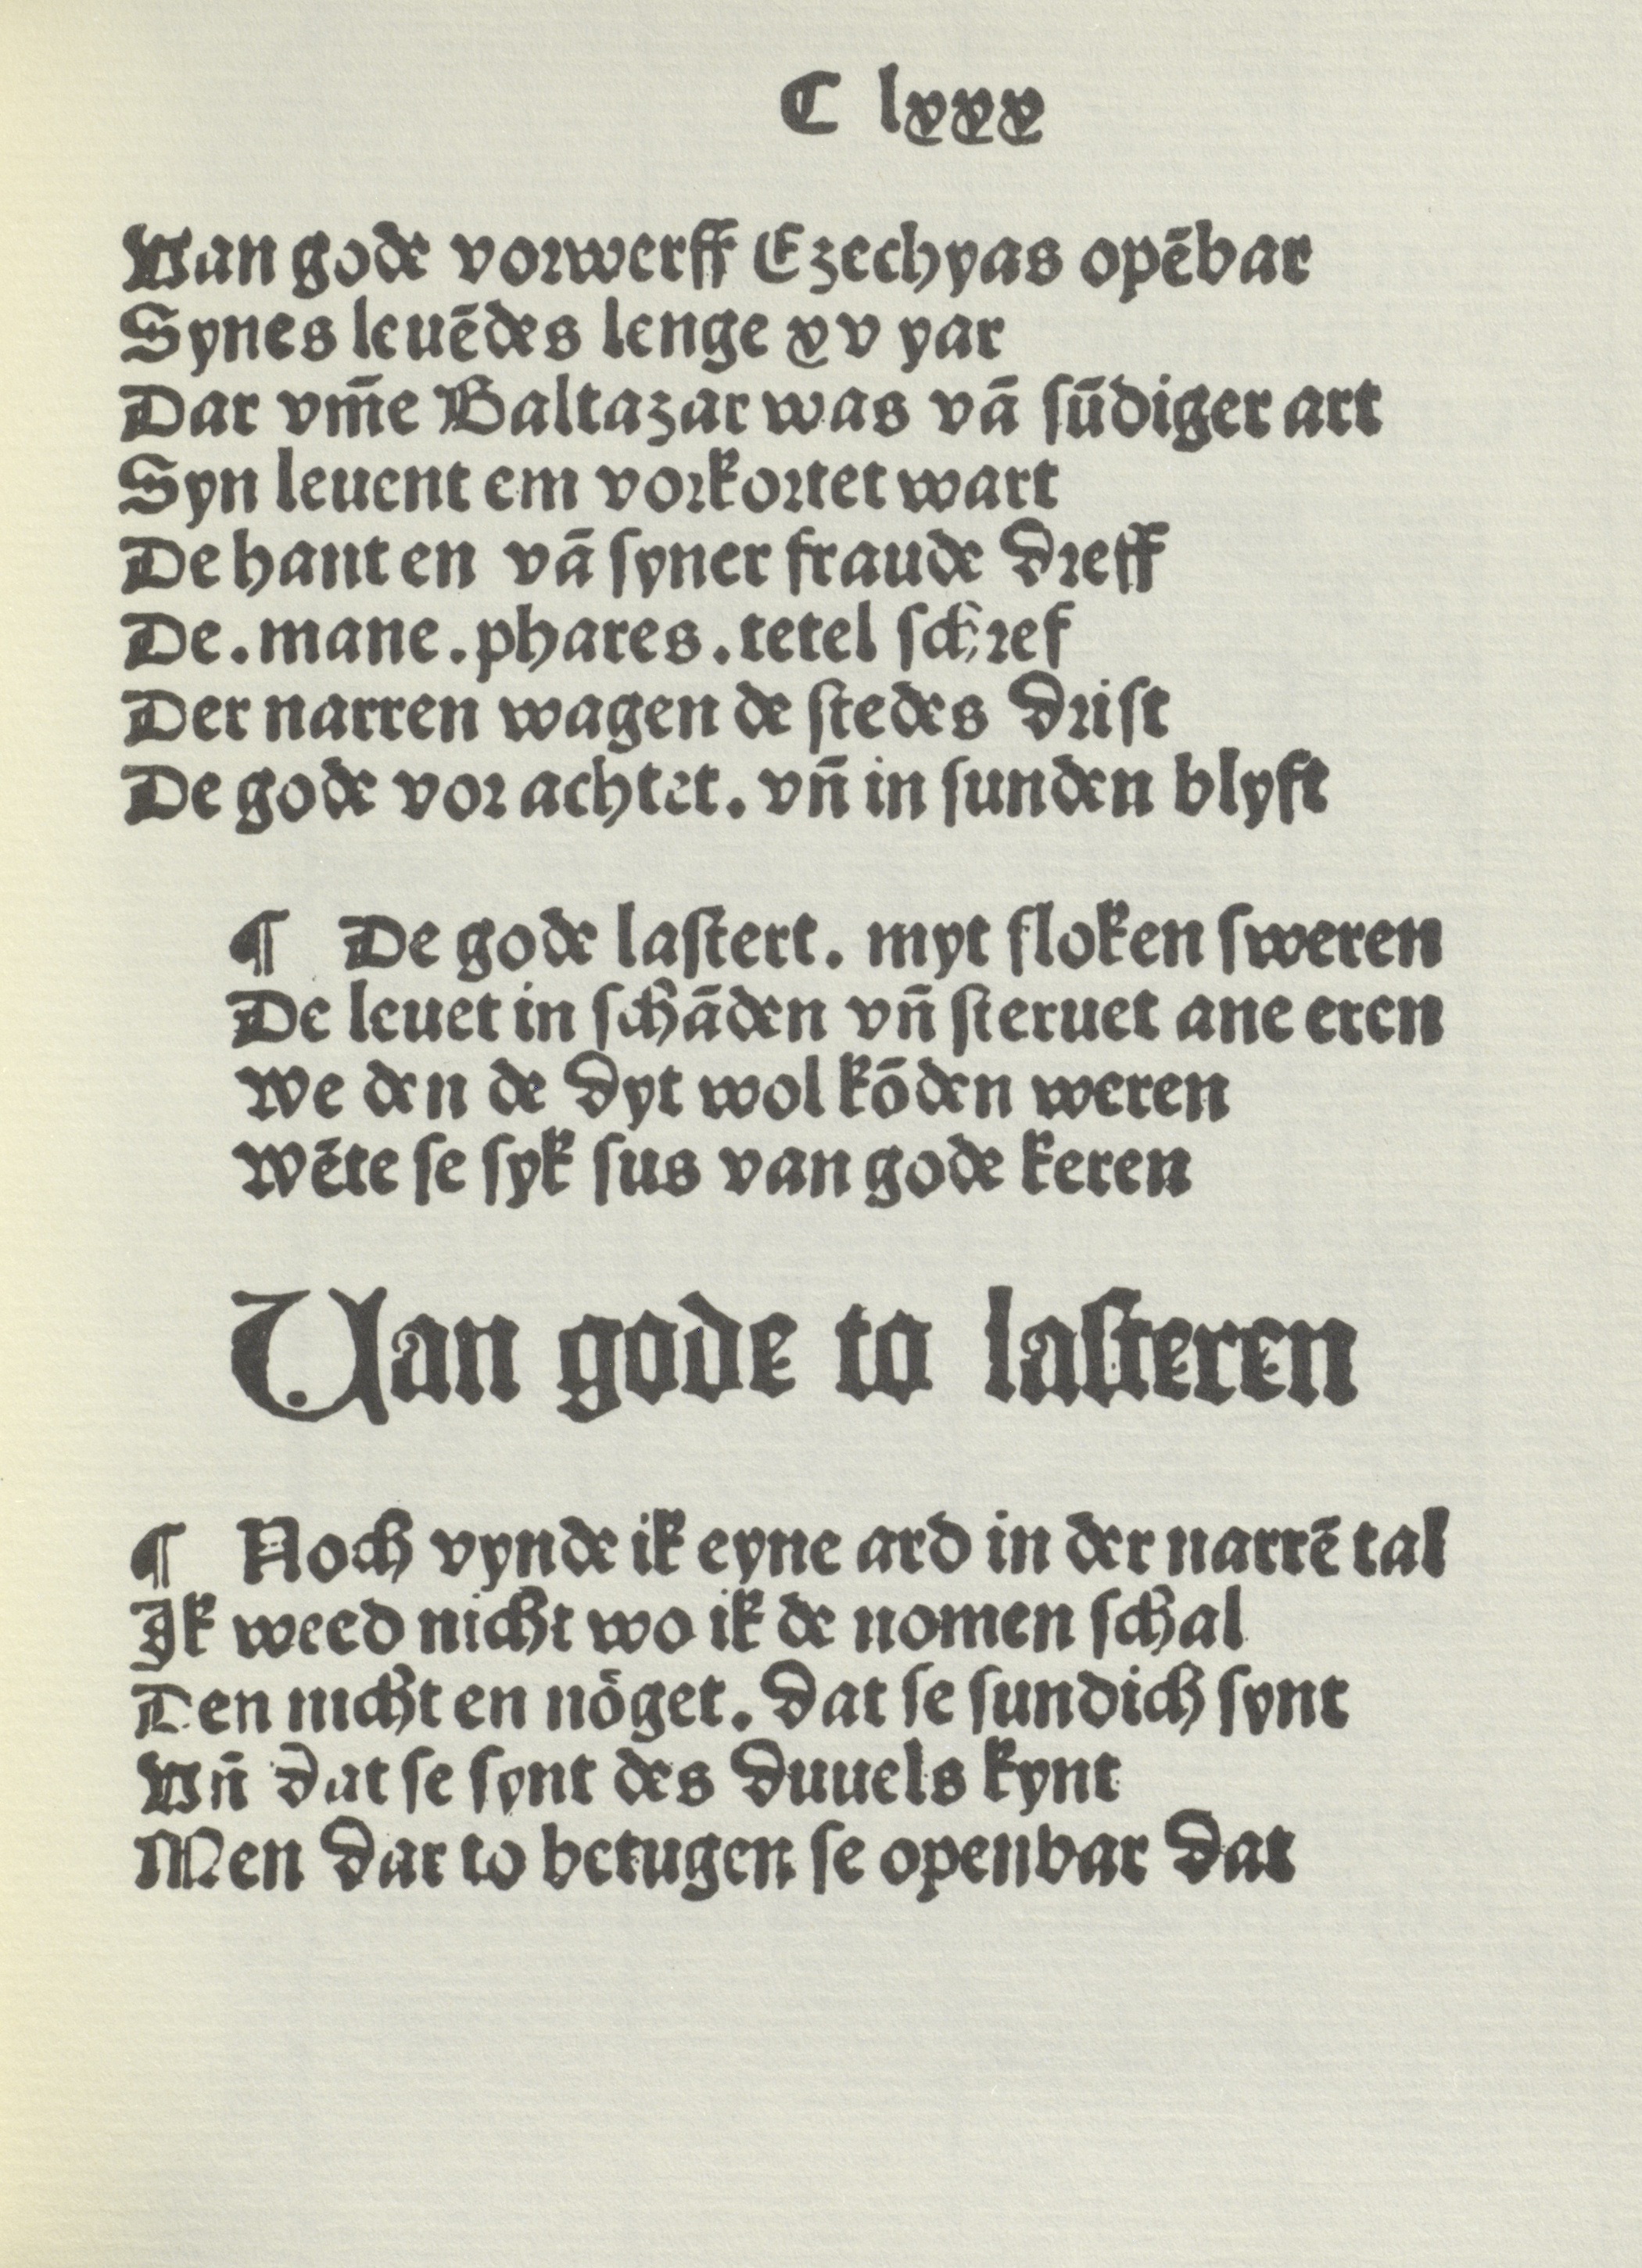 C lxxx
Van gode vorwerff Ezechyas opēbar
Synes leuēdes lenge xv yar
Dar vm̄e Baltazar was vā ſūdiger art
Syn leuent em vorkortet wart
De hant en vā ſyner fraude dreff
De . mane . phares . tetel ſchref
Der narren wagen de ſtedes driſt
De gode vor achtet . vn̄ in ſunden blyft
¶ De gode laſtert . myt floken ſweren
De leuet in ſchāden vn̄ ſteruet ane eren
We den de dyt wol kōden weren
Wēte ſe ſyk ſus van gode keren
Uan gode to laſteren
¶ Noch vynde ik eyne ard in der narrē tal
Ik weed nicht wo ik de nomen ſchal
Den nicht en nöget . dat ſe ſundich ſynt
Vn̄ dat ſe ſynt des duuels kynt
Men dar to betugen ſe openbar dat